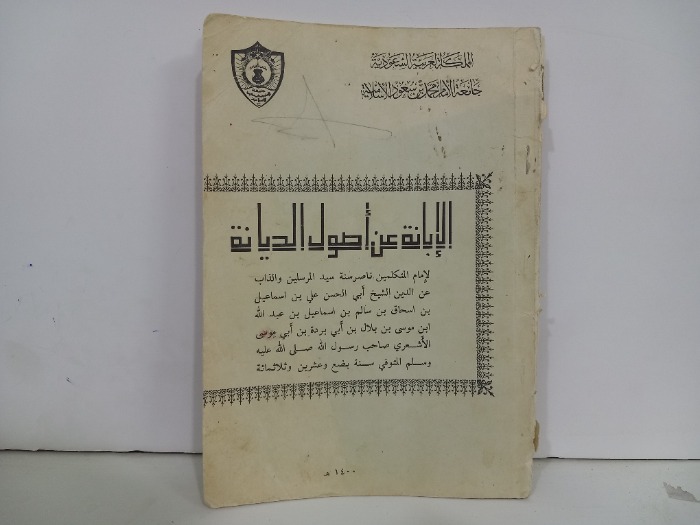 المملكة العربية السعودية
جامعة الإمام محمد بن سعود الإسلامية
الإبانة عن أصول الديانة
لإمام المتكلمين ناصر سنة سيد المرسلين والذاب
عن الدين الشيخ أبي الحسن علي بن اسماعيل
بن اسحاق بن سالم بن اسماعيل بن عبد الله
ابن موسى بن بلال بن أبي بردة بن أبي موسى
الأشعري صاحب رسول الله صلى الله عليه
وسلم المتوفي سنة بضع وعشرين وثلاثمائة
١٤٠٠ هـ